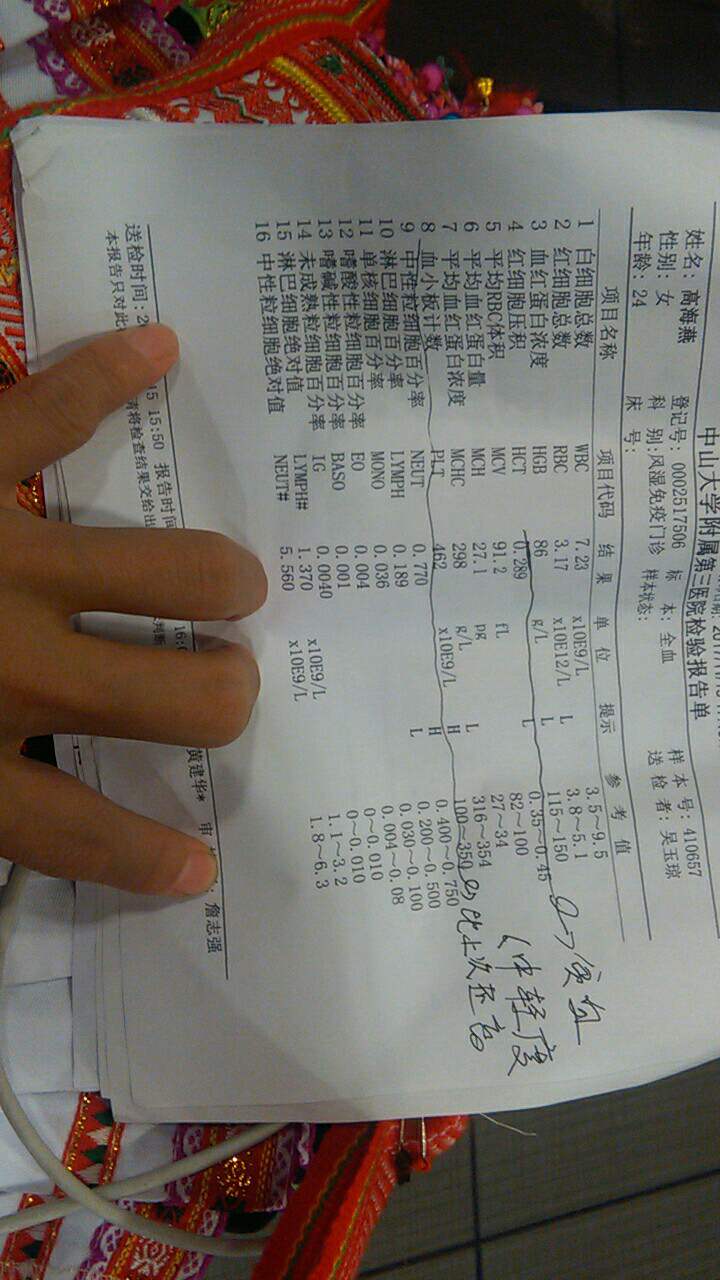 中山大学附属第三医院检验报告单
姓名: 高海燕 登记号: 0002517506 标 本: 全血 样 本 号: 410657
性别: 女 科 别:风湿免疫门诊 样本状态: 送 检 者: 吴玉琼
年龄: 24 床 号:
项目名称 项目代码 结 果 单 位 提示 参 考 值
1 白细胞总数 WBC 7.23 x10E9/L 3.5~9.5
2 红细胞总数 RBC 3.17 x10E12/L L 3.8~5.1
3 血红蛋白浓度 HGB 86 g/L L 115~150
4 红细胞压积 HCT 0.289 L 0.35~0.45
5 平均RBC体积 MCV 91.2 fL 82~100
6 平均血红蛋白量 MCH 27.1 pg 27~34
7 平均血红蛋白浓度 MCHC 298 g/L L 316~354
8 血小板计数 PLT 462 x10E9/L H 100~350
9 中性粒细胞百分率 NEUT 0.770 H 0.400~0.750
10 淋巴细胞百分率 LYMPH 0.189 L 0.200~0.500
11 单核细胞百分率 MONO 0.036 0.030~0.100
12 嗜酸性粒细胞百分率 EO 0.004 0.004~0.08
13 嗜碱性粒细胞百分率 BASO 0.001 0~0.010
14 未成熟粒细胞百分率 IG 0.0040 0~0.010
15 淋巴细胞绝对值 LYMPH# 1.370 x10E9/L 1.1~3.2
16 中性粒细胞绝对值 NEUT# 5.560 x10E9/L 1.8~6.3
贫血
中轻度
比上次还高
送检时间: 15 15:50 报告时间 黄建华* 审 : 詹志强
本报告只对此 请将检查结果交给出 判断